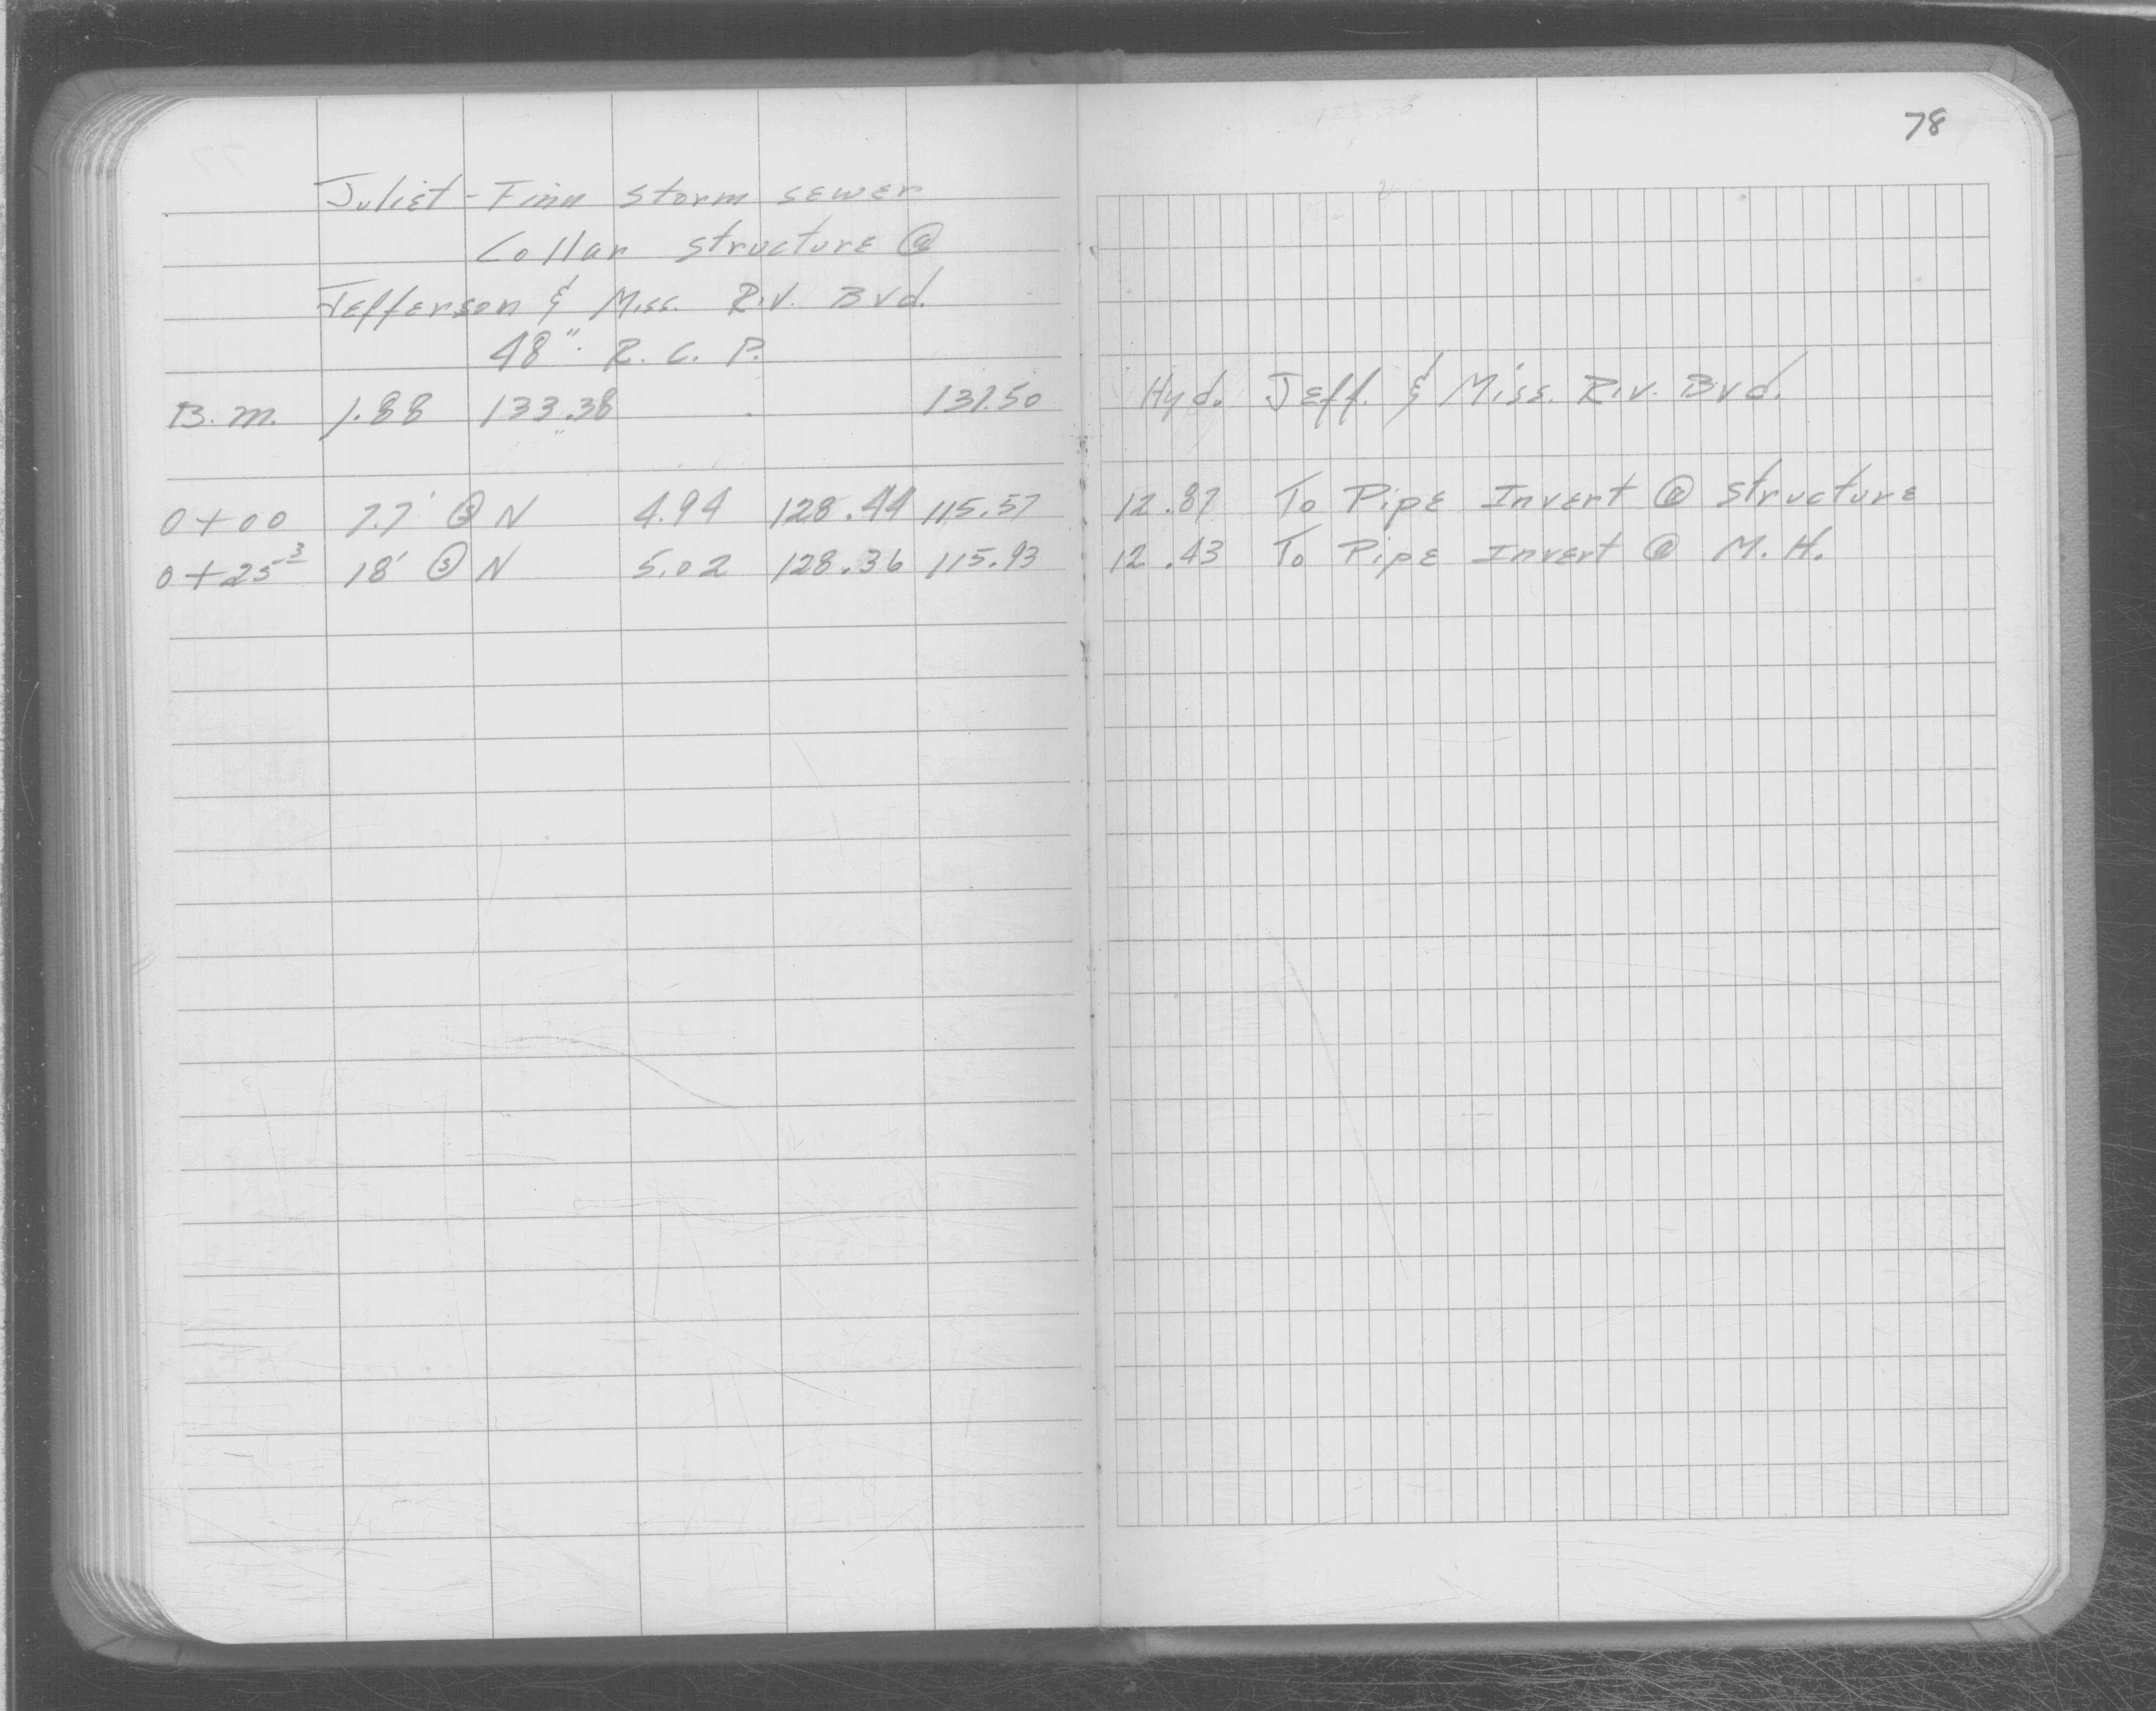 78
Juliet - Finn storm sewer
Collar structure @
Jefferson & Miss. Riv. Bvd.
48" R. C. P.
B.m. 1.88 133.38 131.50 Hyd. Jeff. & Miss. Riv. Bvd.
0+00 7.7' Ⓢ N 4.94 128.44 115.57 12.87 To Pipe Invert @ structure
0+25³ 18' Ⓢ N 5.02 128.36 115.93 12.43 To Pipe Invert @ M.H.